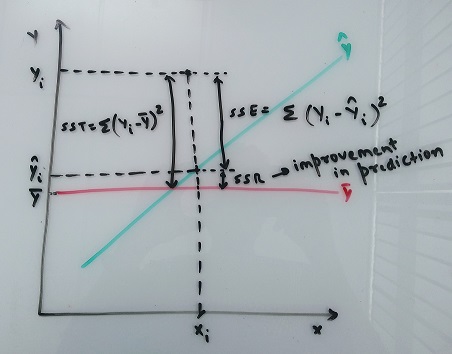 Y
Ŷ
Yi
SST = Σ(Yi-Ȳ)²
SSE = Σ (Yi-Ŷi)²
Ŷi
SSR → improvement
in prediction
Ȳ
Ȳ
xi
x